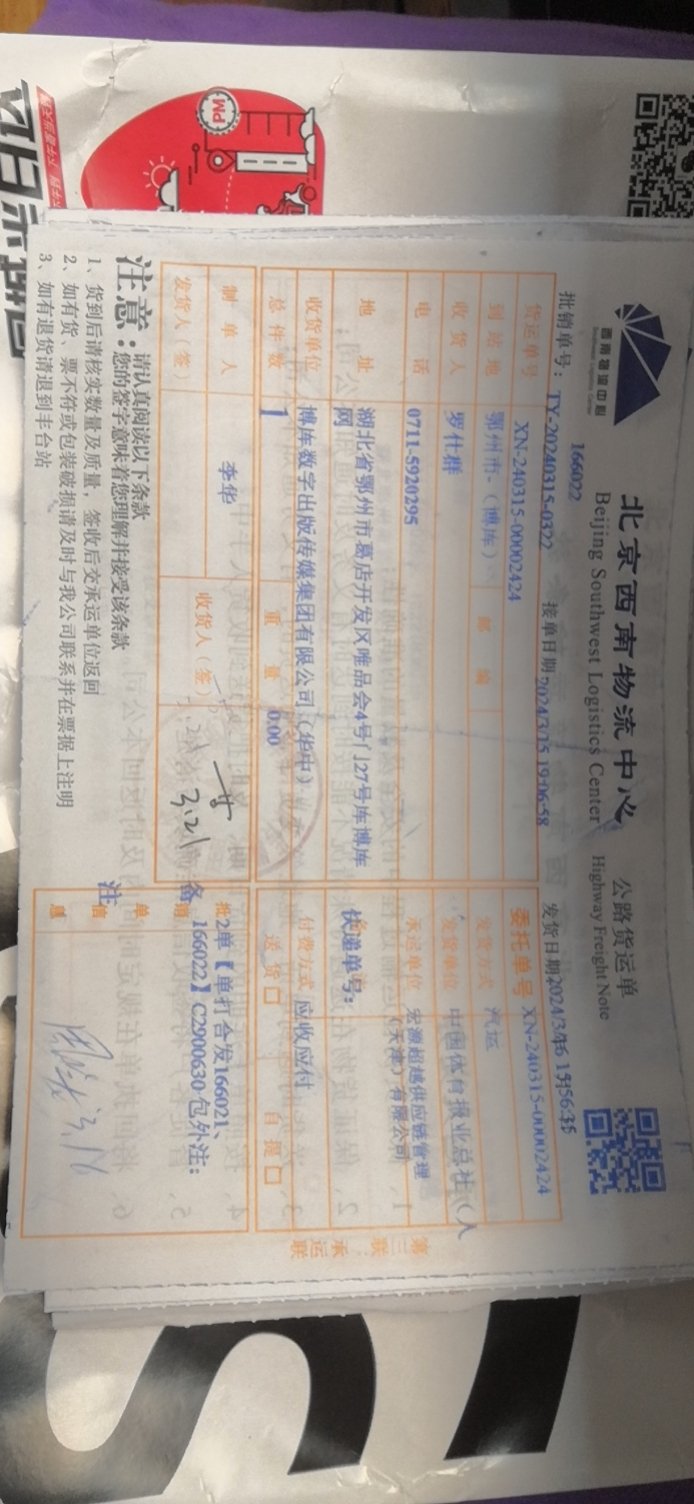 西南物流中心
Southwest Logistics Center
北京西南物流中心
Beijing Southwest Logistics Center
公路货运单
Highway Freight Note
166022
批销单号：TY-20240315-0322
接单日期2024/3/15 19:06:58
发货日期2024/3/16 15:56:35
货运单号 XN-240315-00002424
委托单号 XN-240315-00002424
到站地 鄂州市-（博库） 邮编
发货方式 汽运
收货人 罗仕群
发货单位 中国体育报业总社（人
电话 0711-5920295
承运单位 宏源超越供应链管理
（天津）有限公司
地址 湖北省鄂州市葛店开发区唯品会4号门27号库博库
网
快递单号：
收货单位 博库数字出版传媒集团有限公司（华中）
付费方式 应收应付
总件数 1 重量 0.00
送货□ 自提□
制单人 李华
收货人（签）
3.21
发货人（签）
备注
批2单【单打合发166021、
166022】C2900630-包外注：
单
信
息
3.16
第三联：承运联
注意：
请认真阅读以下条款
您的签字意味着您理解并接受该条款
1、货到后请核实数量及质量，签收后交承运单位返回
2、如有货、票不符或包装破损请及时与我公司联系并在票据上注明
3、如有退货请退到丰台站
PM